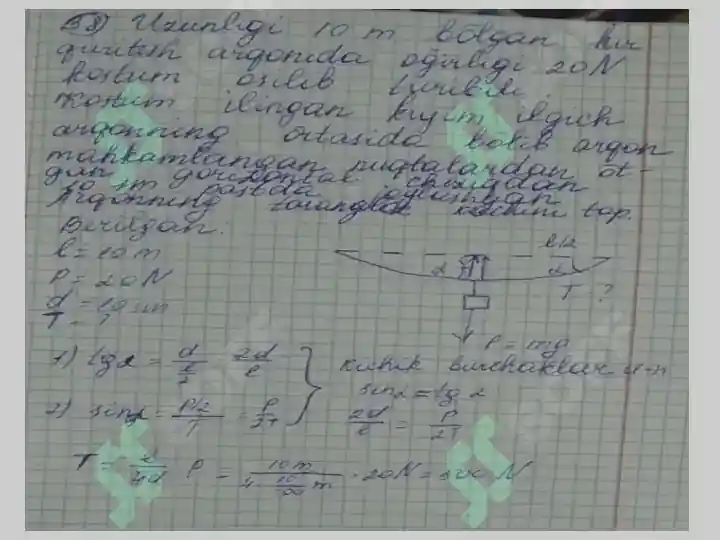 58) Uzunligi 10 m bólgan bir
quritish arqonida oģirligi 20N
kostum osilib turibdi.
Kostum ilingan kiyim ilgich
arqonning ortasida bólib arqon
mahkamlangan nuqtalardan ot-
gan gorizontal chiziqdan
10 sm pastda joylashgan
Arqonning taranglik kuchini top.
Berilgan:
l = 10 m
P = 20N
d = 10 sm
T = ?
l/2
α α
T - ?
P = mg
1) tgα = d/(l/2) = 2d/l
kichik burchaklar u-n
sinα = tgα
2) sinα = (P/2)/T = P/2T
2d/l = P/2T
T = l/4d P = 10m/(4 · 10/100 m) · 20N = 500N